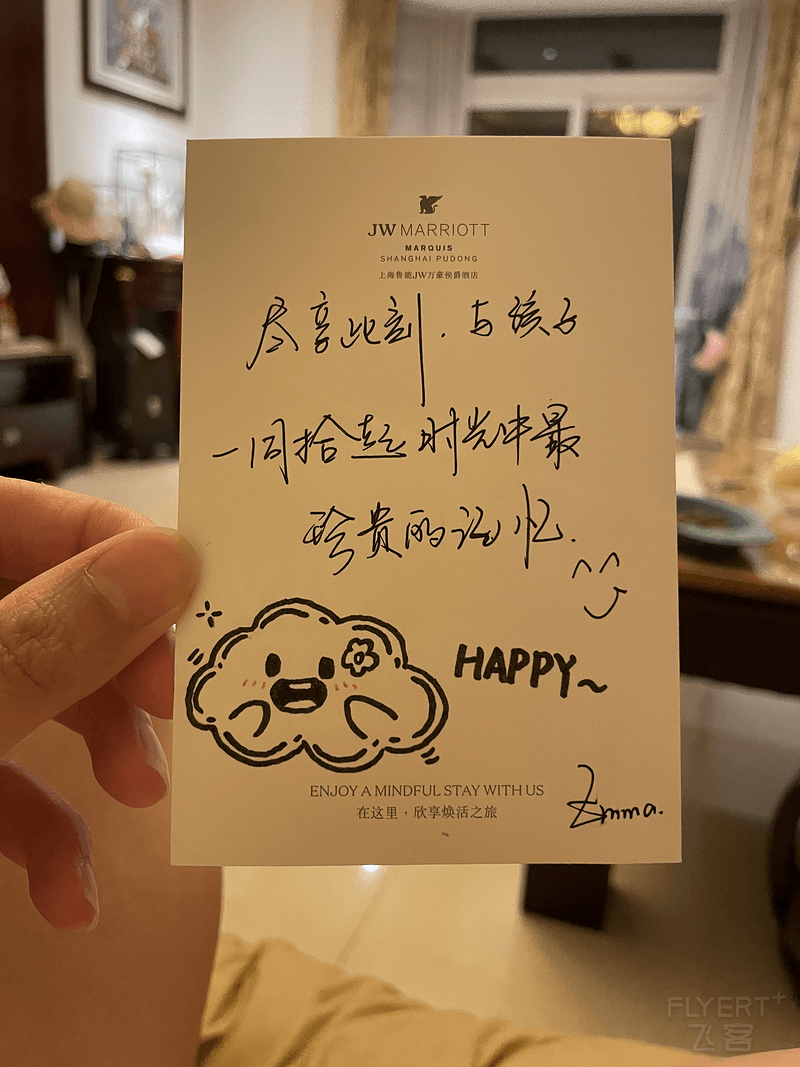 JW MARRIOTT
MARQUIS
SHANGHAI PUDONG
上海鲁能JW万豪侯爵酒店
尽享此刻.与孩子
一同拾起时光中最
珍贵的记忆.
HAPPY~
ENJOY A MINDFUL STAY WITH US
在这里，欣享焕活之旅
Emma.
FLYERT+
飞客